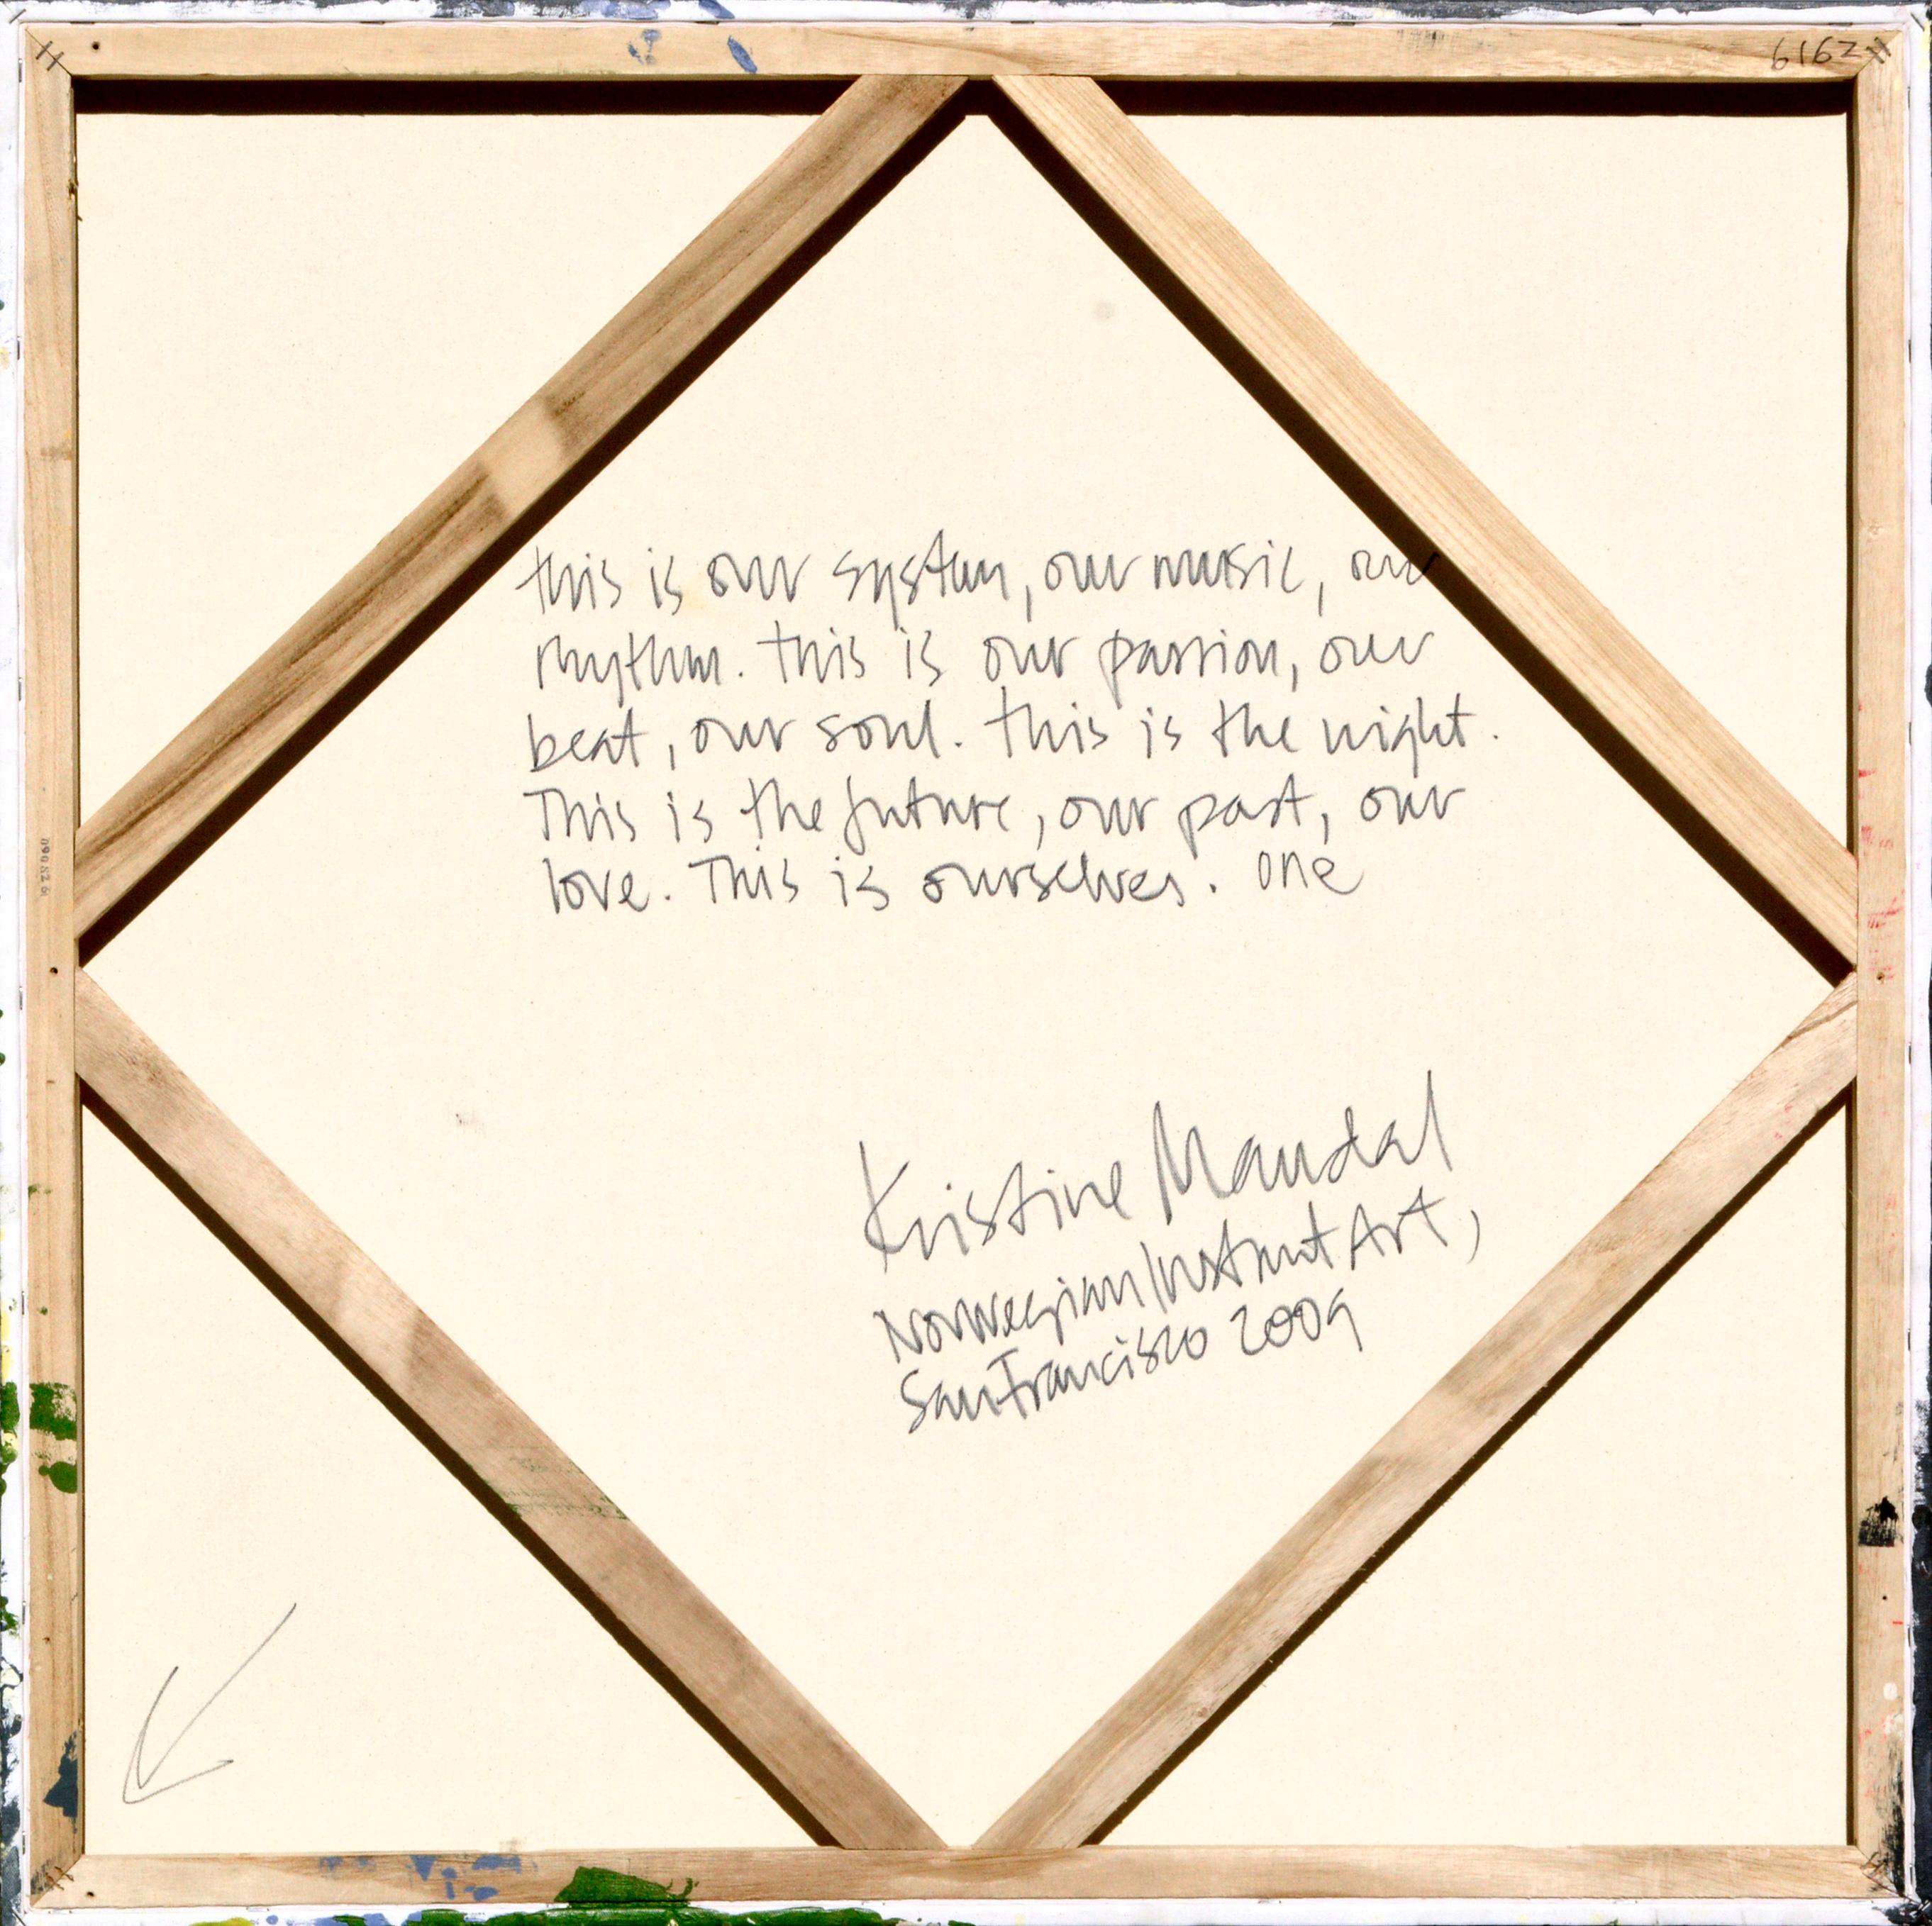 6162
this is our system, our music, our
rhythm. this is our passion, our
beat, our soul. this is the night.
This is the future, our past, our
love. This is ourselves. one
Kristine Mandal
Norwegian Instant Art,
San Francisco 2009